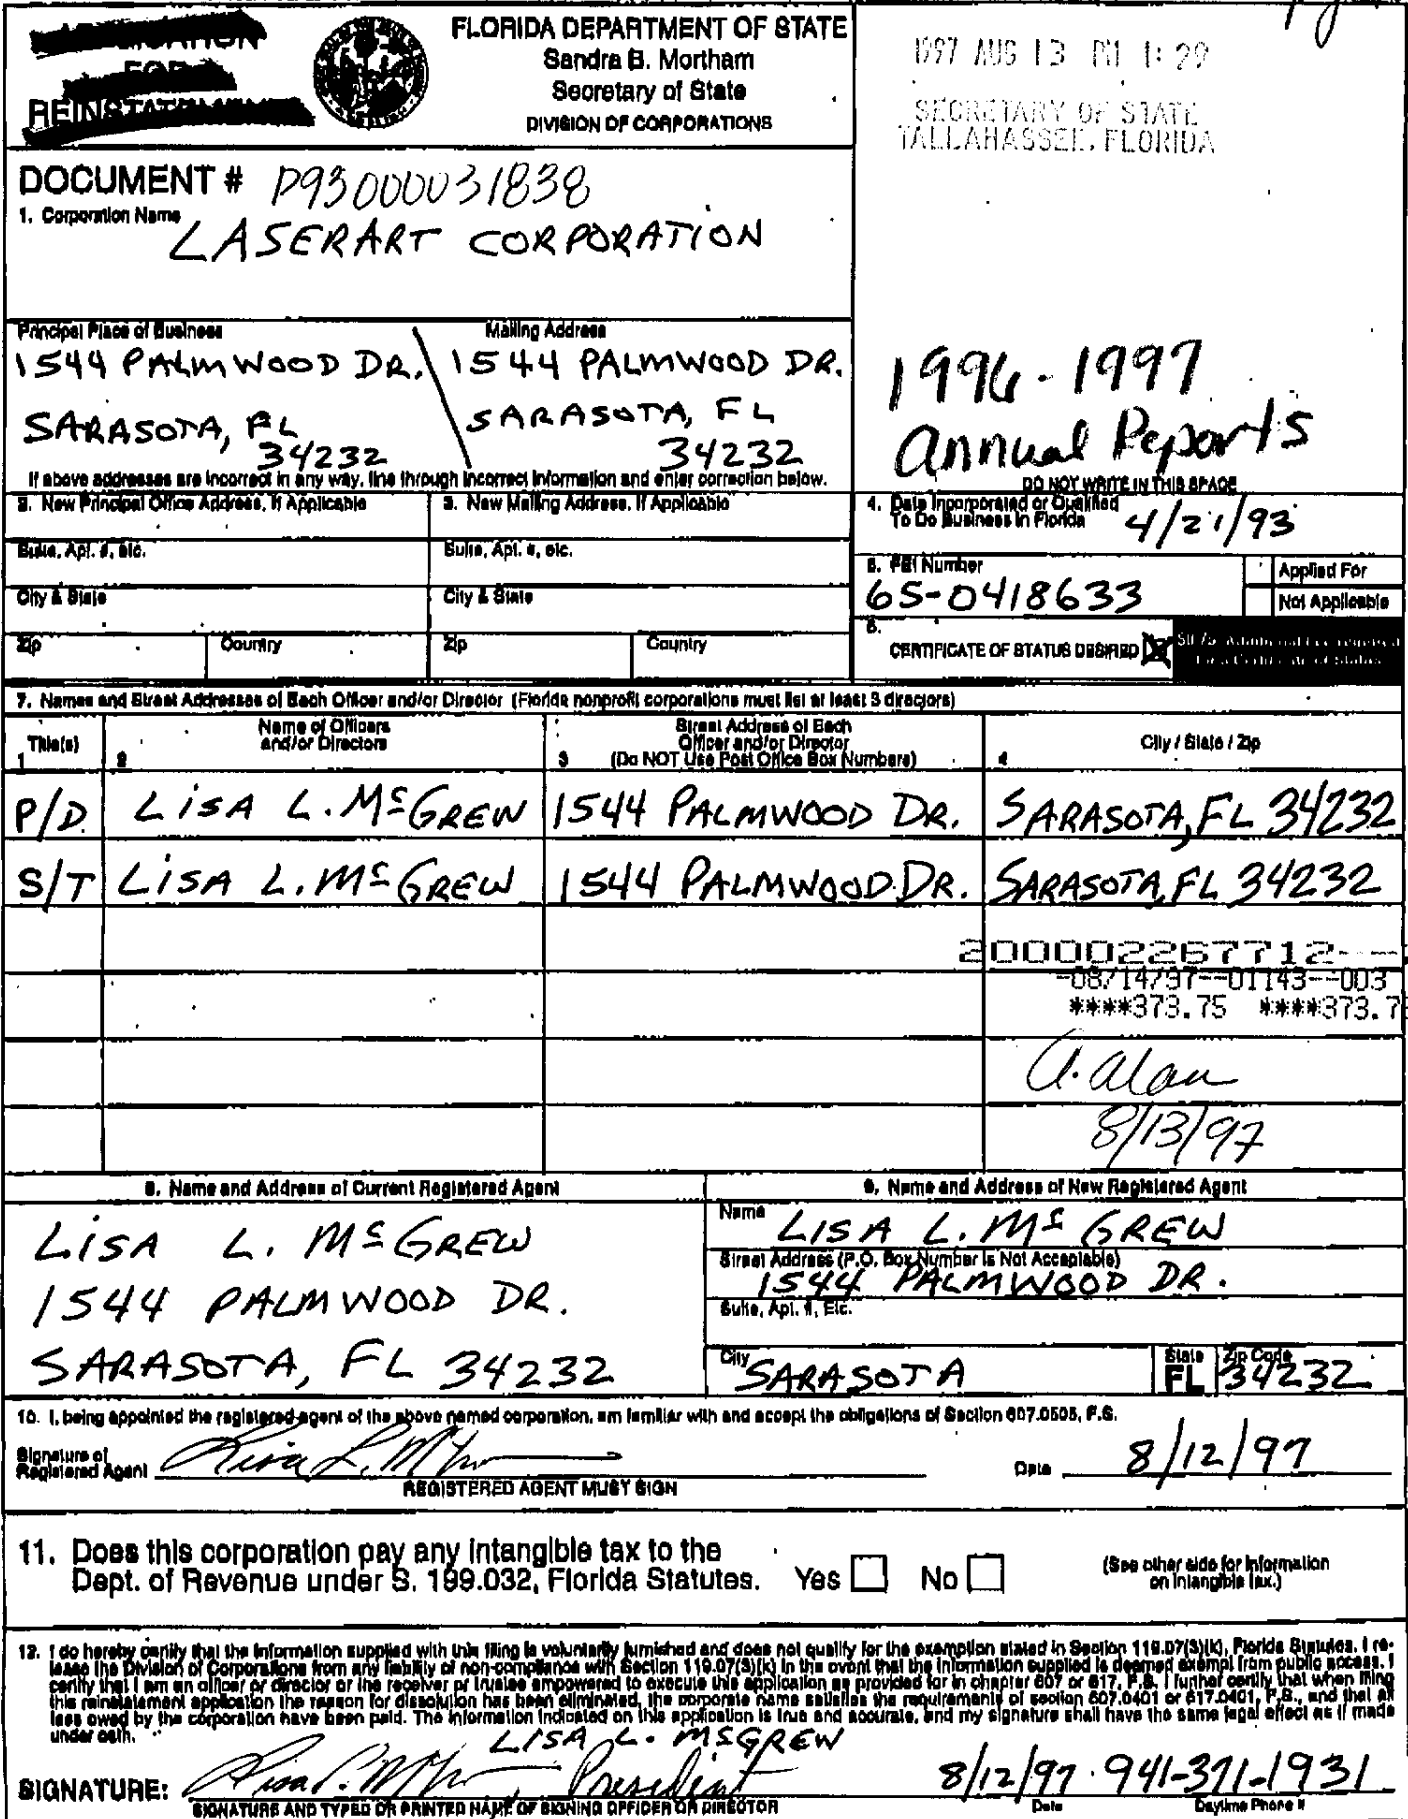 FOR
REINSTATEMENT
FLORIDA DEPARTMENT OF STATE
Sandra B. Mortham
Secretary of State
DIVISION OF CORPORATIONS
1997 AUG 13 PM 1:29
SECRETARY OF STATE
TALLAHASSEE, FLORIDA
DOCUMENT # P93000031838
1. Corporation Name
LASERART CORPORATION
Principal Place of Business
Mailing Address
1544 PALMWOOD DR.
1544 PALMWOOD DR.
SARASOTA, FL
34232
SARASOTA, FL
34232
If above addresses are incorrect in any way, line through incorrect information and enter correction below.
1996-1997
Annual Reports
DO NOT WRITE IN THIS SPACE
2. New Principal Office Address, If Applicable
3. New Mailing Address, If Applicable
Suite, Apt. #, etc.
Suite, Apt. #, etc.
City & State
City & State
Zip
Country
Zip
Country
4. Date Incorporated or Qualified
To Do Business in Florida
4/21/93
5. FEI Number
65-0418633
Applied For
Not Applicable
6.
CERTIFICATE OF STATUS DESIRED
7. Names and Street Addresses of Each Officer and/or Director (Florida nonprofit corporations must list at least 3 directors)
Title(s)
1
Name of Officers
and/or Directors
2
Street Address of Each
Officer and/or Director
3 (Do NOT Use Post Office Box Numbers)
4
City / State / Zip
P/D LISA L. McGREW 1544 PALMWOOD DR. SARASOTA, FL 34232
S/T LISA L. McGREW 1544 PALMWOOD DR. SARASOTA, FL 34232
200002267712--
-08/14/97--01143--003
****373.75 ****373.7
A. Alan
8/13/97
8. Name and Address of Current Registered Agent
LISA L. McGREW
1544 PALMWOOD DR.
SARASOTA, FL 34232
9. Name and Address of New Registered Agent
Name
LISA L. McGREW
Street Address (P.O. Box Number is Not Acceptable)
1544 PALMWOOD DR.
Suite, Apt. #, Etc.
City
SARASOTA
State
FL
Zip Code
34232
10. I, being appointed the registered agent of the above named corporation, am familiar with and accept the obligations of Section 607.0505, F.S.
Signature of
Registered Agent
Lisa L. McGrew
REGISTERED AGENT MUST SIGN
Date 8/12/97
11. Does this corporation pay any intangible tax to the
Dept. of Revenue under S. 199.032, Florida Statutes. Yes No
(See other side for information
on intangible tax.)
12. I do hereby certify that the information supplied with this filing is voluntarily furnished and does not qualify for the exemption stated in Section 119.07(3)(k), Florida Statutes. I re-
lease the Division of Corporations from any liability of non-compliance with Section 119.07(3)(k) in the event that the information supplied is deemed exempt from public access. I
certify that I am an officer or director or the receiver or trustee empowered to execute this application as provided for in chapter 607 or 617, F.S. I further certify that when filing
this reinstatement application the reason for dissolution has been eliminated, the corporate name satisfies the requirements of section 607.0401 or 617.0401, F.S., and that all
fees owed by the corporation have been paid. The information indicated on this application is true and accurate, and my signature shall have the same legal effect as if made
under oath.
LISA L. McGREW
SIGNATURE: Lisa L. McGrew, President
8/12/97 941-371-1931
SIGNATURE AND TYPED OR PRINTED NAME OF SIGNING OFFICER OR DIRECTOR
Date
Daytime Phone #